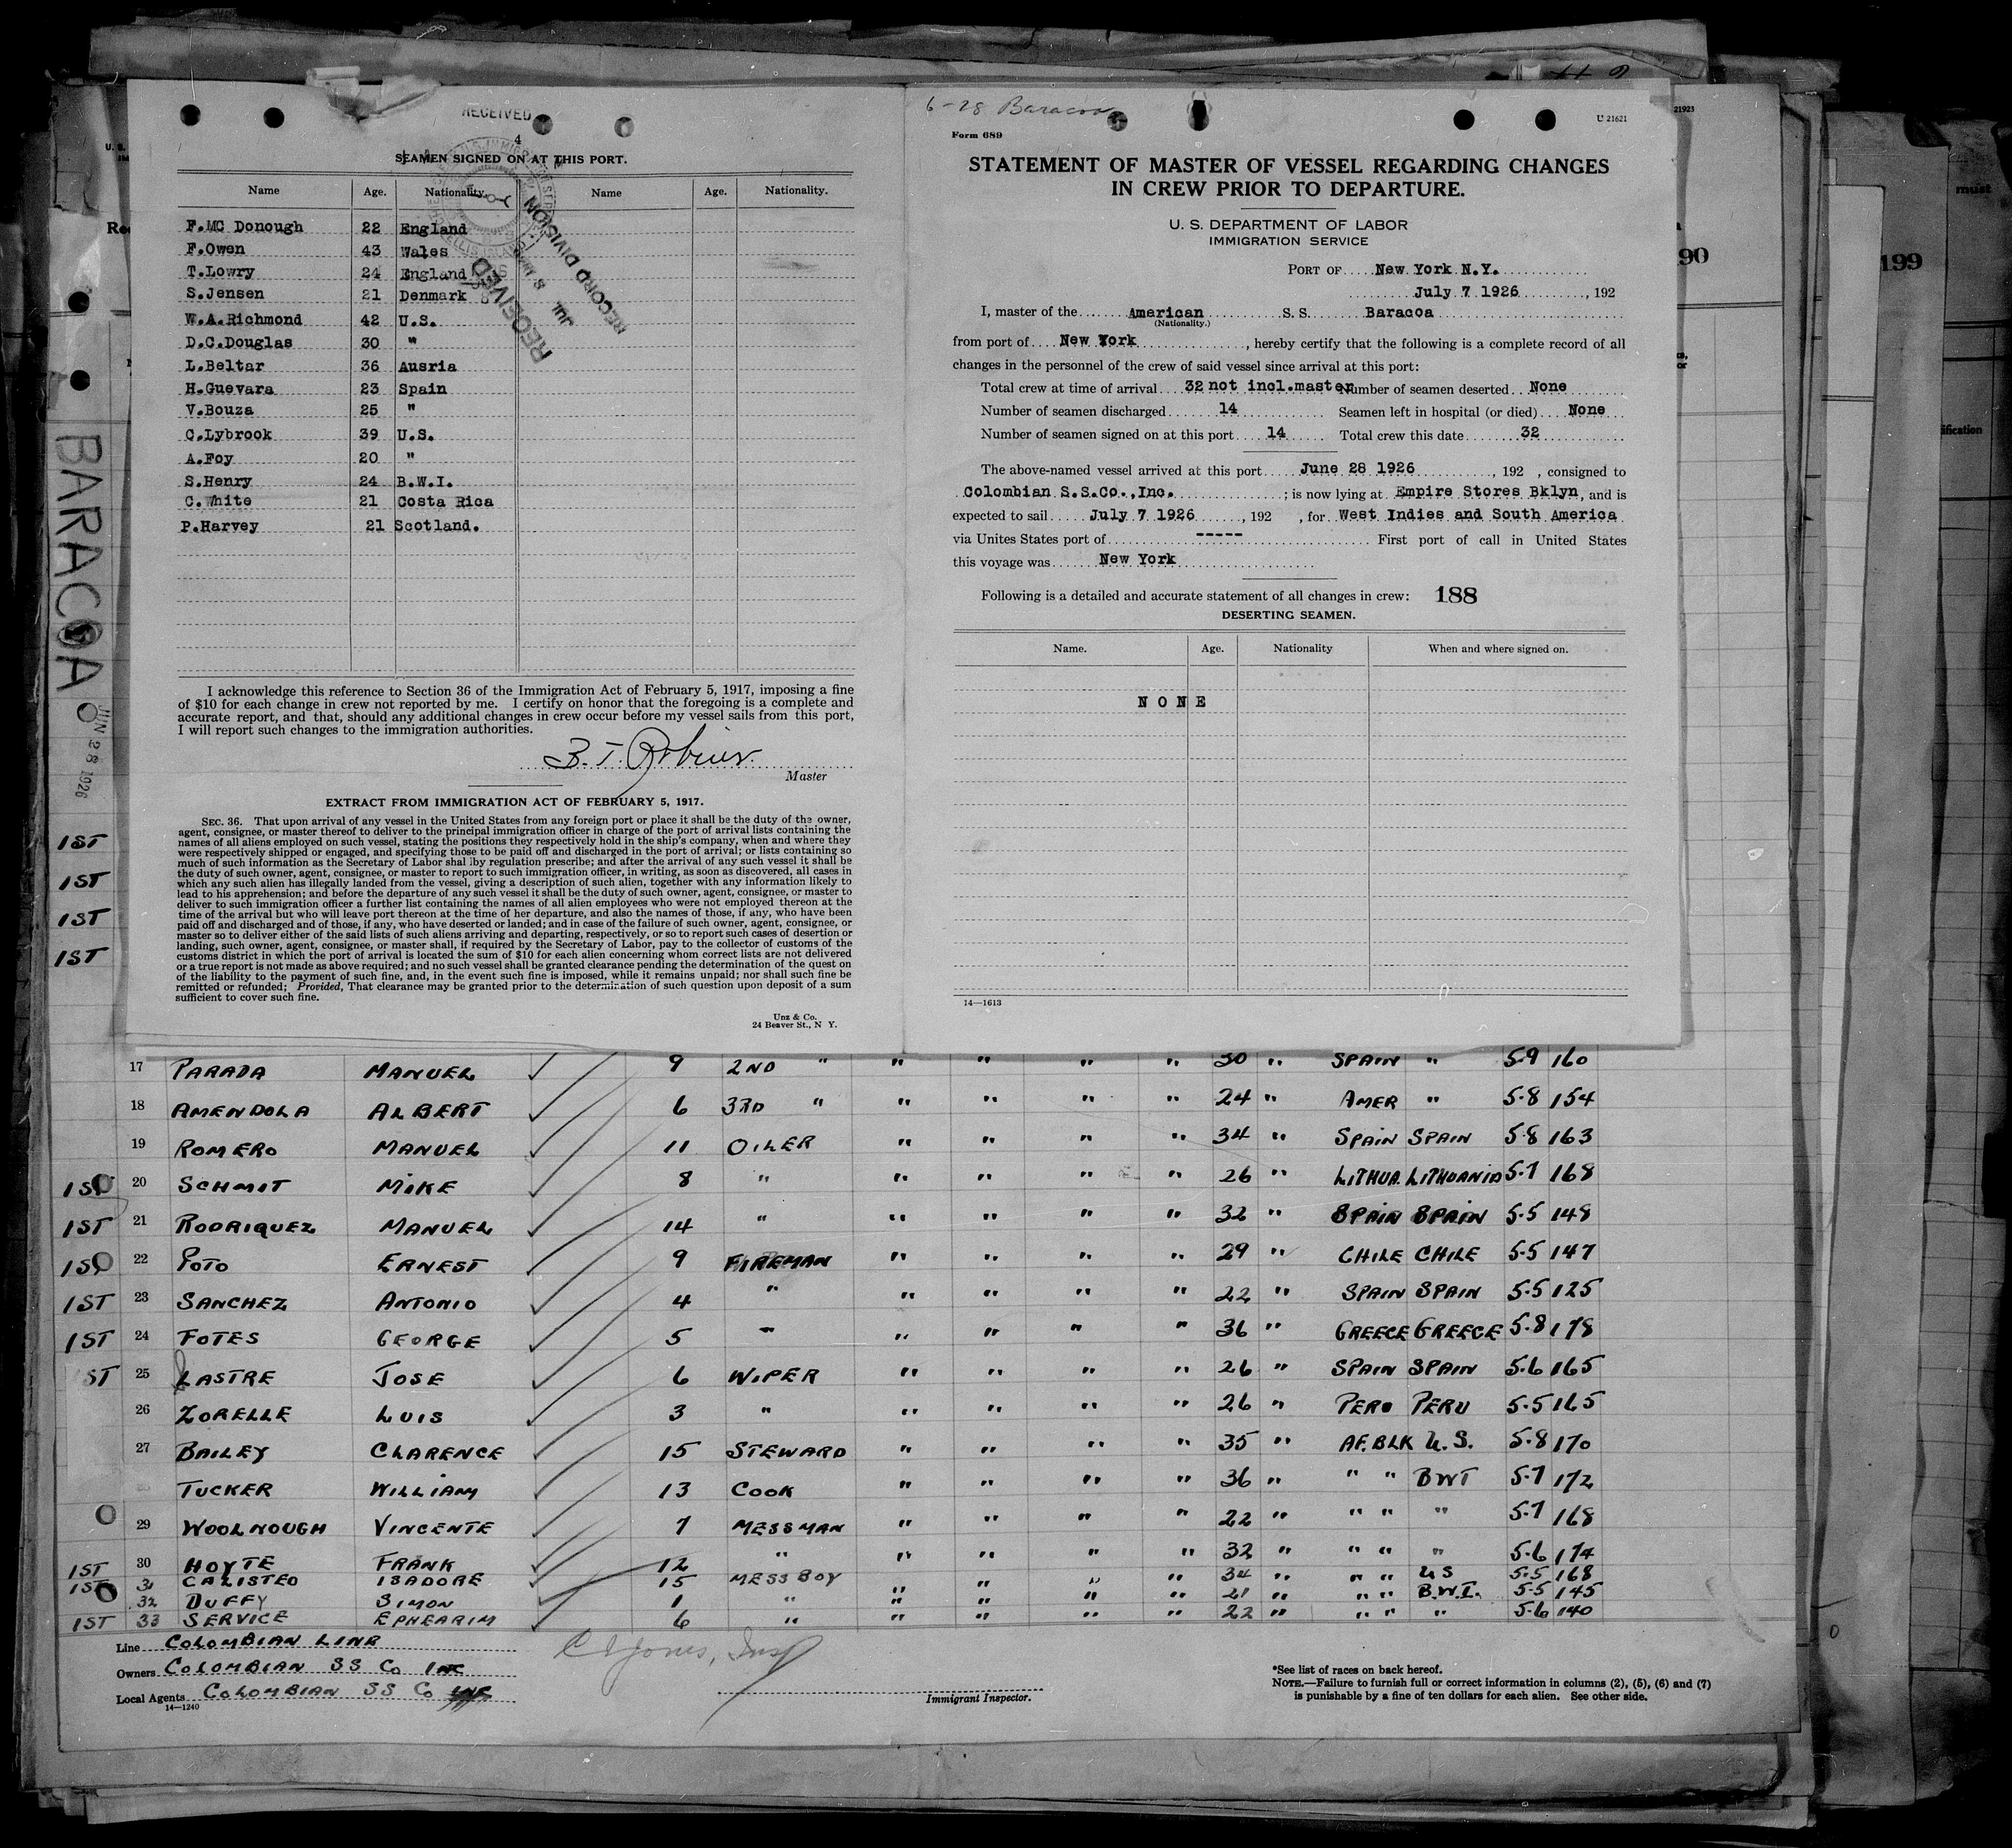 RECEIVED
4
SEAMEN SIGNED ON AT THIS PORT.
Name Age. Nationality. Name Age. Nationality.
F.MC Donough 22 England
F.Owen 43 Wales
T.Lowry 24 England
S.Jensen 21 Denmark
W.A.Richmond 42 U.S.
D.C.Douglas 30 "
L.Beltar 36 Ausria
H.Guevara 23 Spain
V.Bouza 25 "
C.Lybrook 39 U.S.
A.Foy 20 "
S.Henry 24 B.W.I.
C.White 21 Costa Rica
P.Harvey 21 Scotland.
RECEIVED
JUL 8
RECORD DIVISION
I acknowledge this reference to Section 36 of the Immigration Act of February 5, 1917, imposing a fine
of $10 for each change in crew not reported by me. I certify on honor that the foregoing is a complete and
accurate report, and that, should any additional changes in crew occur before my vessel sails from this port,
I will report such changes to the immigration authorities.
B. T.
Master
EXTRACT FROM IMMIGRATION ACT OF FEBRUARY 5, 1917.
SEC. 36. That upon arrival of any vessel in the United States from any foreign port or place it shall be the duty of the owner,
agent, consignee, or master thereof to deliver to the principal immigration officer in charge of the port of arrival lists containing the
names of all aliens employed on such vessel, stating the positions they respectively hold in the ship's company, when and where they
were respectively shipped or engaged, and specifying those to be paid off and discharged in the port of arrival; or lists containing so
much of such information as the Secretary of Labor shal lby regulation prescribe; and after the arrival of any such vessel it shall be
the duty of such owner, agent, consignee, or master to report to such immigration officer, in writing, as soon as discovered, all cases in
which any such alien has illegally landed from the vessel, giving a description of such alien, together with any information likely to
lead to his apprehension; and before the departure of any such vessel it shall be the duty of such owner, agent, consignee, or master to
deliver to such immigration officer a further list containing the names of all alien employees who were not employed thereon at the
time of the arrival but who will leave port thereon at the time of her departure, and also the names of those, if any, who have been
paid off and discharged and of those, if any, who have deserted or landed; and in case of the failure of such owner, agent, consignee, or
master so to deliver either of the said lists of such aliens arriving and departing, respectively, or so to report such cases of desertion or
landing, such owner, agent, consignee, or master shall, if required by the Secretary of Labor, pay to the collector of customs of the
customs district in which the port of arrival is located the sum of $10 for each alien concerning whom correct lists are not delivered
or a true report is not made as above required; and no such vessel shall be granted clearance pending the determination of the quest on
of the liability to the payment of such fine, and, in the event such fine is imposed, while it remains unpaid; nor shall such fine be
remitted or refunded; Provided, That clearance may be granted prior to the determination of such question upon deposit of a sum
sufficient to cover such fine.
Unz & Co.
24 Beaver St., N Y.
6-28 Baracoa
U 21621
Form 689
STATEMENT OF MASTER OF VESSEL REGARDING CHANGES
IN CREW PRIOR TO DEPARTURE.
U. S. DEPARTMENT OF LABOR
IMMIGRATION SERVICE
PORT OF New York N.Y.
July 7 1926, 192
I, master of the American S. S. Baracoa
(Nationality.)
from port of New York, hereby certify that the following is a complete record of all
changes in the personnel of the crew of said vessel since arrival at this port:
Total crew at time of arrival 32 not incl.master Number of seamen deserted None
Number of seamen discharged 14 Seamen left in hospital (or died) None
Number of seamen signed on at this port 14 Total crew this date 32
The above-named vessel arrived at this port June 28 1926, 192 , consigned to
Colombian S.S.Co.,Inc. ; is now lying at Empire Stores Bklyn, and is
expected to sail July 7 1926, 192 , for West Indies and South America
via Unites States port of ----- First port of call in United States
this voyage was New York
Following is a detailed and accurate statement of all changes in crew: 188
DESERTING SEAMEN.
Name. Age. Nationality When and where signed on.
NONE
14—1613
21923
90
199
must
ification
BARACOA
JUN 28 1926
1ST
1ST
1ST
1ST
17 PARADA MANUEL 9 2ND " " " " " 30 " SPAIN " 5-9 160
18 AMENDOLA ALBERT 6 3RD " " " " " 24 " AMER " 5-8 154
19 ROMERO MANUEL 11 OILER " " " " 34 " SPAIN SPAIN 5-8 163
1ST 20 SCHMIT MIKE 8 " " " " " 26 " LITHUA. LITHUANIA 5-7 168
1ST 21 RODRIQUEZ MANUEL 14 " " " " " 32 " SPAIN SPAIN 5-5 148
1ST 22 POTO ERNEST 9 FIREMAN " " " " 29 " CHILE CHILE 5-5 147
1ST 23 SANCHEZ ANTONIO 4 " " " " " 22 " SPAIN SPAIN 5-5 125
1ST 24 FOTES GEORGE 5 " " " " " 36 " GREECE GREECE 5-8 178
1ST 25 LASTRE JOSE 6 WIPER " " " " 26 " SPAIN SPAIN 5-6 165
26 ZORELLE LUIS 3 " " " " " 26 " PERU PERU 5-5 165
27 BAILEY CLARENCE 15 STEWARD " " " " 35 " AF. BLK U.S. 5-8 170
TUCKER WILLIAM 13 COOK " " " " 36 " " " BWI 5-7 172
29 WOOLNOUGH VINCENTE 7 MESSMAN " " " " 22 " " " " 5-7 168
1ST 30 HOYTE FRANK 12 " " " " " 32 " " " " 5-6 174
1ST 31 CALISTEO ISADORE 15 MESS BOY " " " " 34 " " " US 5-5 168
32 DUFFY SIMON 1 " " " " " 21 " " " B.W.I. 5-5 145
1ST 33 SERVICE EPHEARIM 6 " " " " " 22 " " " " 5-6 140
Line COLOMBIAN LINE
Owners COLOMBIAN SS Co INC
Local Agents COLOMBIAN SS Co INC
14—1240
C I Jones, Insp
Immigrant Inspector.
*See list of races on back hereof.
NOTE.—Failure to furnish full or correct information in columns (2), (5), (6) and (7)
is punishable by a fine of ten dollars for each alien. See other side.